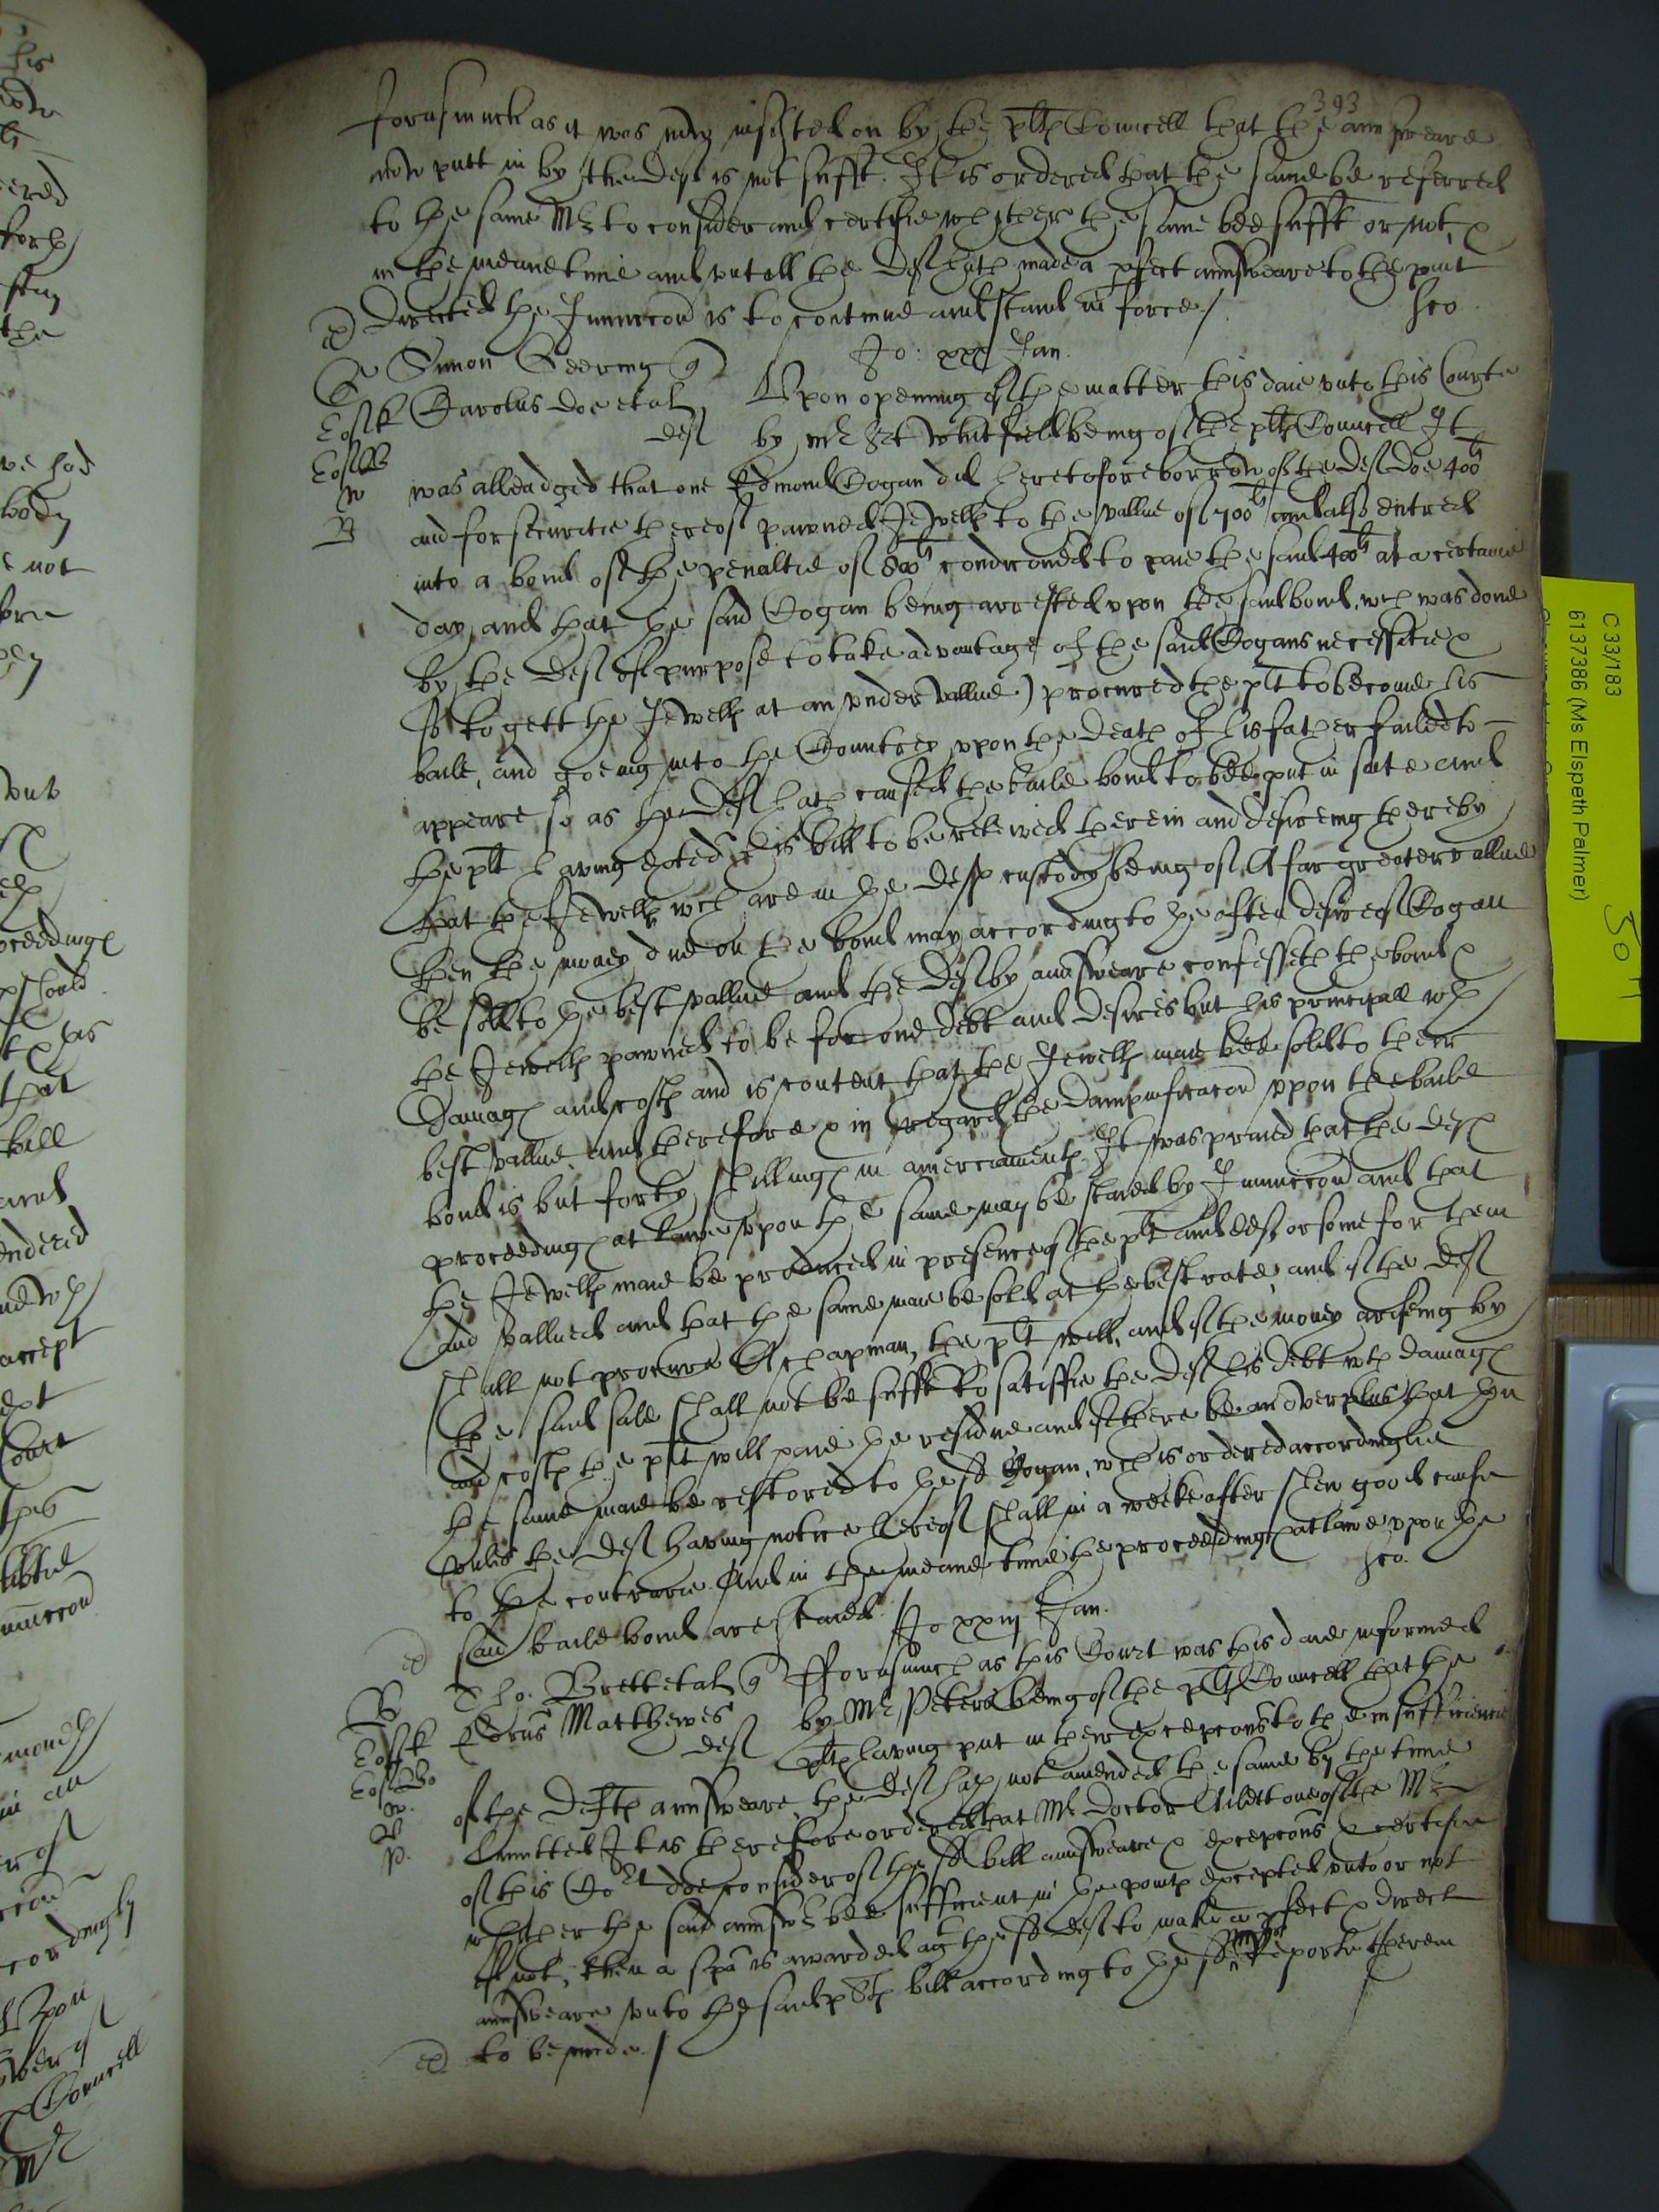 393
forasmuch as it was now insisted on by the pltes Councell that the annsweare
now putt in by the Deft is not sufft. It is ordered that the same be referred
to the same Mr to consider and certifie whether the same bee sufft or not, &
in the meane time and untill the Deft hath made a pfect annsweare to the point
directed the Iniunccon is to continue and stand in force /
Jo: xxx Jan.
Simon Geering
Carolus Doe et al
def
Upon opening of the matter this daie unto this Courte
by Mr Whitfeild being of the pltes Councell It
was alleadged that one Edmond Cogan did heretofore borrow of the Deft Doe 400li
and for securitie thereof pawned Jewells to the vallue of 700li and also entred
into a bond of the penaltie of 800li condiconed to paie the said 400li at a certaine
day, and that the said Cogan being arrested upon the said bond, wch was done
by the Deft of purpose to take advantage of the said Cogans necessitie &
so to gett the Jewells at an under vallue) procured the plt to become his
baile, and goeing into the Countrey upon the death of his father failed to
appeare, so as the Deft hath caused the baile bond to bee put in suite and
the plt having his bill to be releived therein and desireing thereby
that the Jewells wch are in the Defts custody being of A far greater vallue
then the money due on the bond may according to the often desire of Cogan
be sold to the best vallue and the Deft by annsweare confesseth the bond &
the Jewells pawned to be for one debt and desires but his principall wth
Damages and costs and is content that the Jewells maie bee sold to their
best vallue, and therefore & in regard the Dampnificacon upon the baile
bond is but forty shillings in amerciaments. It was praied that the Defts
proceedings at lawe upon the same may be staied by Iniunccon and that
the Jewells maie be produced in presence of the plt and deft or some for them
and vallued and that the same maie be sold at the best rate, and if the Deft
shall not procure A chapman, the plt will, and if the money ariseing by
the said sale shall not be sufft to satisfie the Deft his debt wth damages
and costs the plt will paie the residue and if there be an overplus that then
the same maie be restored to the sd Cogan, wch is ordered accordinglie
unles the Deft having notice hereof shall in a weeke after shew good cause
to the contrarie. And in the meane time the proceedings at lawe upon the
said baile bond are staied. /
Jo xxiij Jan.
Tho. Brett et al
Matthewes
def
Fforasmuch as this Court was this daie informed
by Mr Peters being of the pltes Councell that the
pltes having put in their excepcons to the insufficiencie
of the Defts annsweare, the Deft hath not amended the same by the time
limitted It is therefore ordered that Mr Doctor one of the Mrs
of this Cort doe consider of the sd bill annsweare & excepcons & certifie
whether the said annswr bee sufficient in the points excepted unto or not
If not, then a spa is awarded agt the sd Deft to make a pfect & direct
annsweare unto the said plts bill according to the sd Mrs Reporte therein
to be made. /
C 33/183
6137386 (Ms Elspeth Palmer)